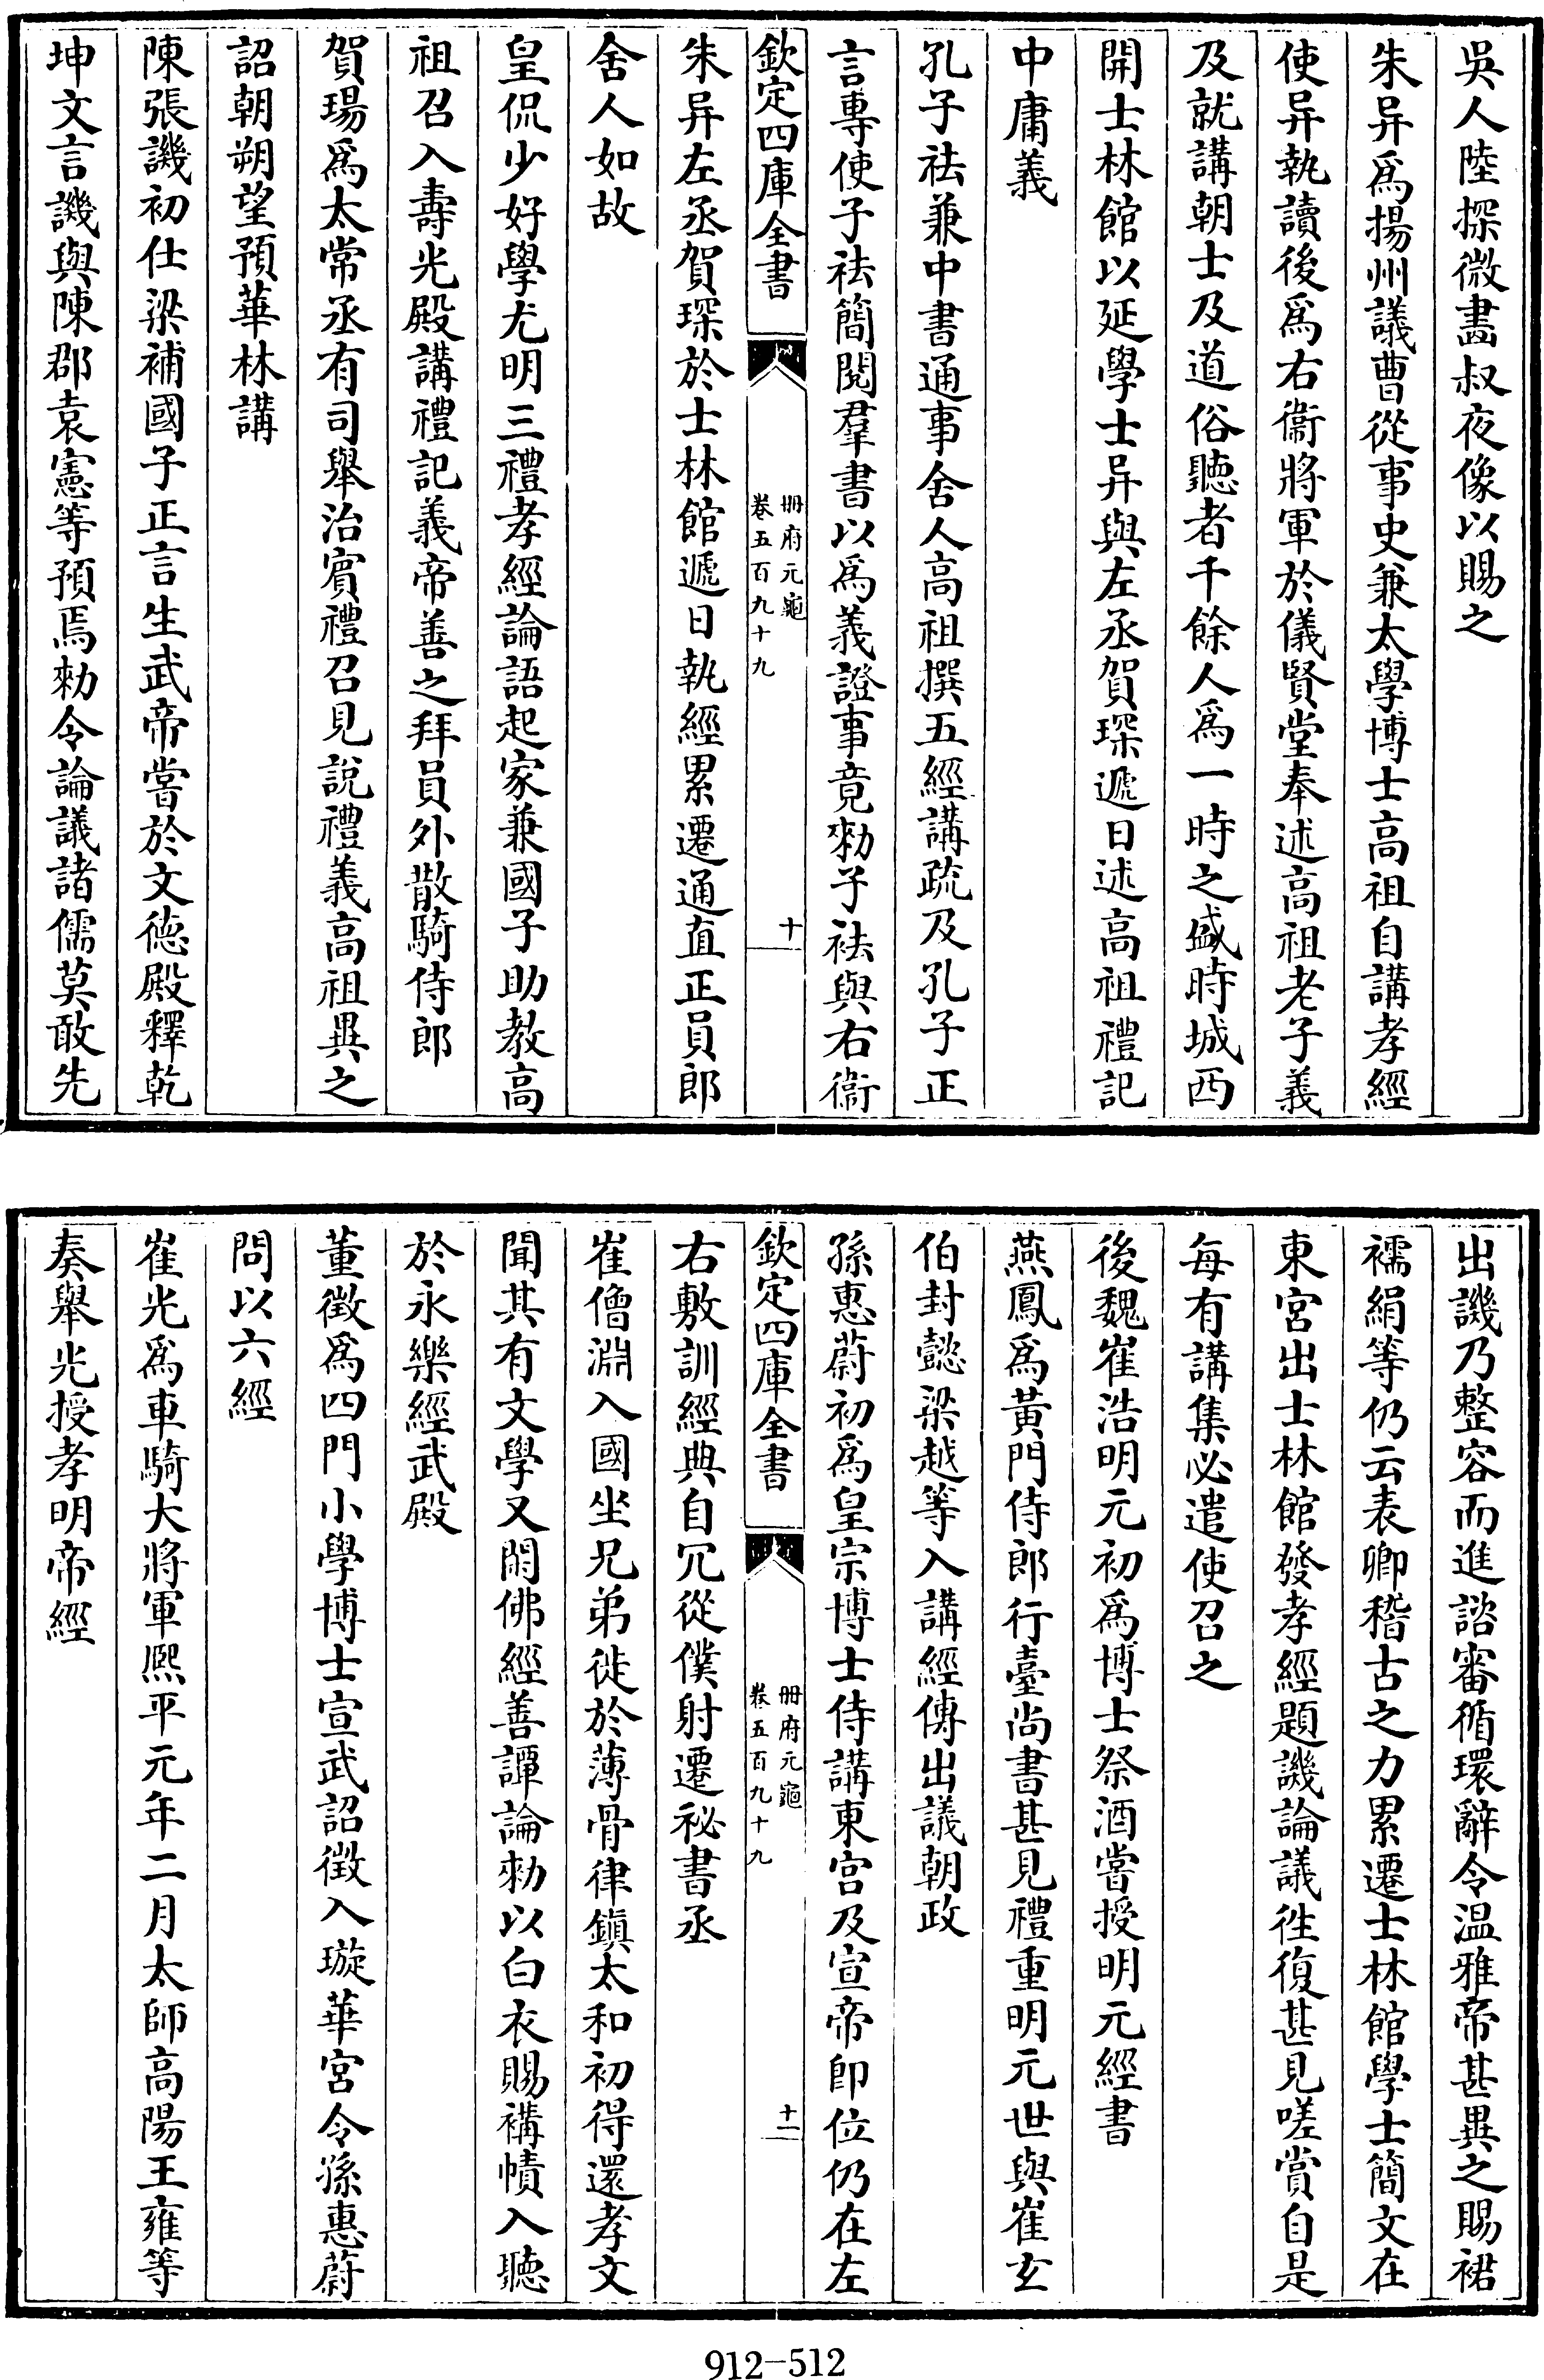 吳人陸探微畫叔夜像以賜之
朱异爲揚州議曹從事史兼太學博士高祖自講孝經
使异執讀後爲右衞將軍於儀賢堂奉述高祖老子義
及就講朝士及道俗聽者千餘人爲一時之盛時城西
開士林館以延學士异與左丞賀琛遞日述高祖禮記
中庸義
孔子祛兼中書通事舍人高祖撰五經講疏及孔子正
言專使子祛簡閱羣書以爲義證事竟勑子祛與右衞
欽定四庫全書
冊府元龜
卷五百九十九
十
朱异左丞賀琛於士林館遞日執經累遷通直正員郎
舍人如故
皇侃少好學尤明三禮孝經論語起家兼國子助教高
祖召入壽光殿講禮記義帝善之拜員外散騎侍郎
賀瑒爲太常丞有司舉治賓禮召見說禮義高祖異之
詔朝朔望預華林講
陳張譏初仕梁補國子正言生武帝嘗於文德殿釋乾
坤文言譏與陳郡袁憲等預焉勑令論議諸儒莫敢先
出譏乃整容而進諮審循環辭令温雅帝甚異之賜裙
襦絹等仍云表卿稽古之力累遷士林館學士簡文在
東宮出士林館發孝經題譏論議往復甚見嗟賞自是
每有講集必遣使召之
後魏崔浩明元初爲博士祭酒嘗授明元經書
燕鳳爲黃門侍郎行臺尚書甚見禮重明元世與崔玄
伯封懿梁越等入講經傳出議朝政
孫惠蔚初爲皇宗博士侍講東宮及宣帝即位仍在左
欽定四庫全書
冊府元龜
卷五百九十九
十一
右敷訓經典自冗從僕射遷祕書丞
崔僧淵入國坐兄弟徙於薄骨律鎮太和初得還孝文
聞其有文學又閑佛經善譚論勑以白衣賜褠幘入聽
於永樂經武殿
董徵爲四門小學博士宣武詔徵入璇華宮令孫惠蔚
問以六經
崔光爲車騎大將軍熙平元年二月太師高陽王雍等
奏舉光授孝明帝經
912-512